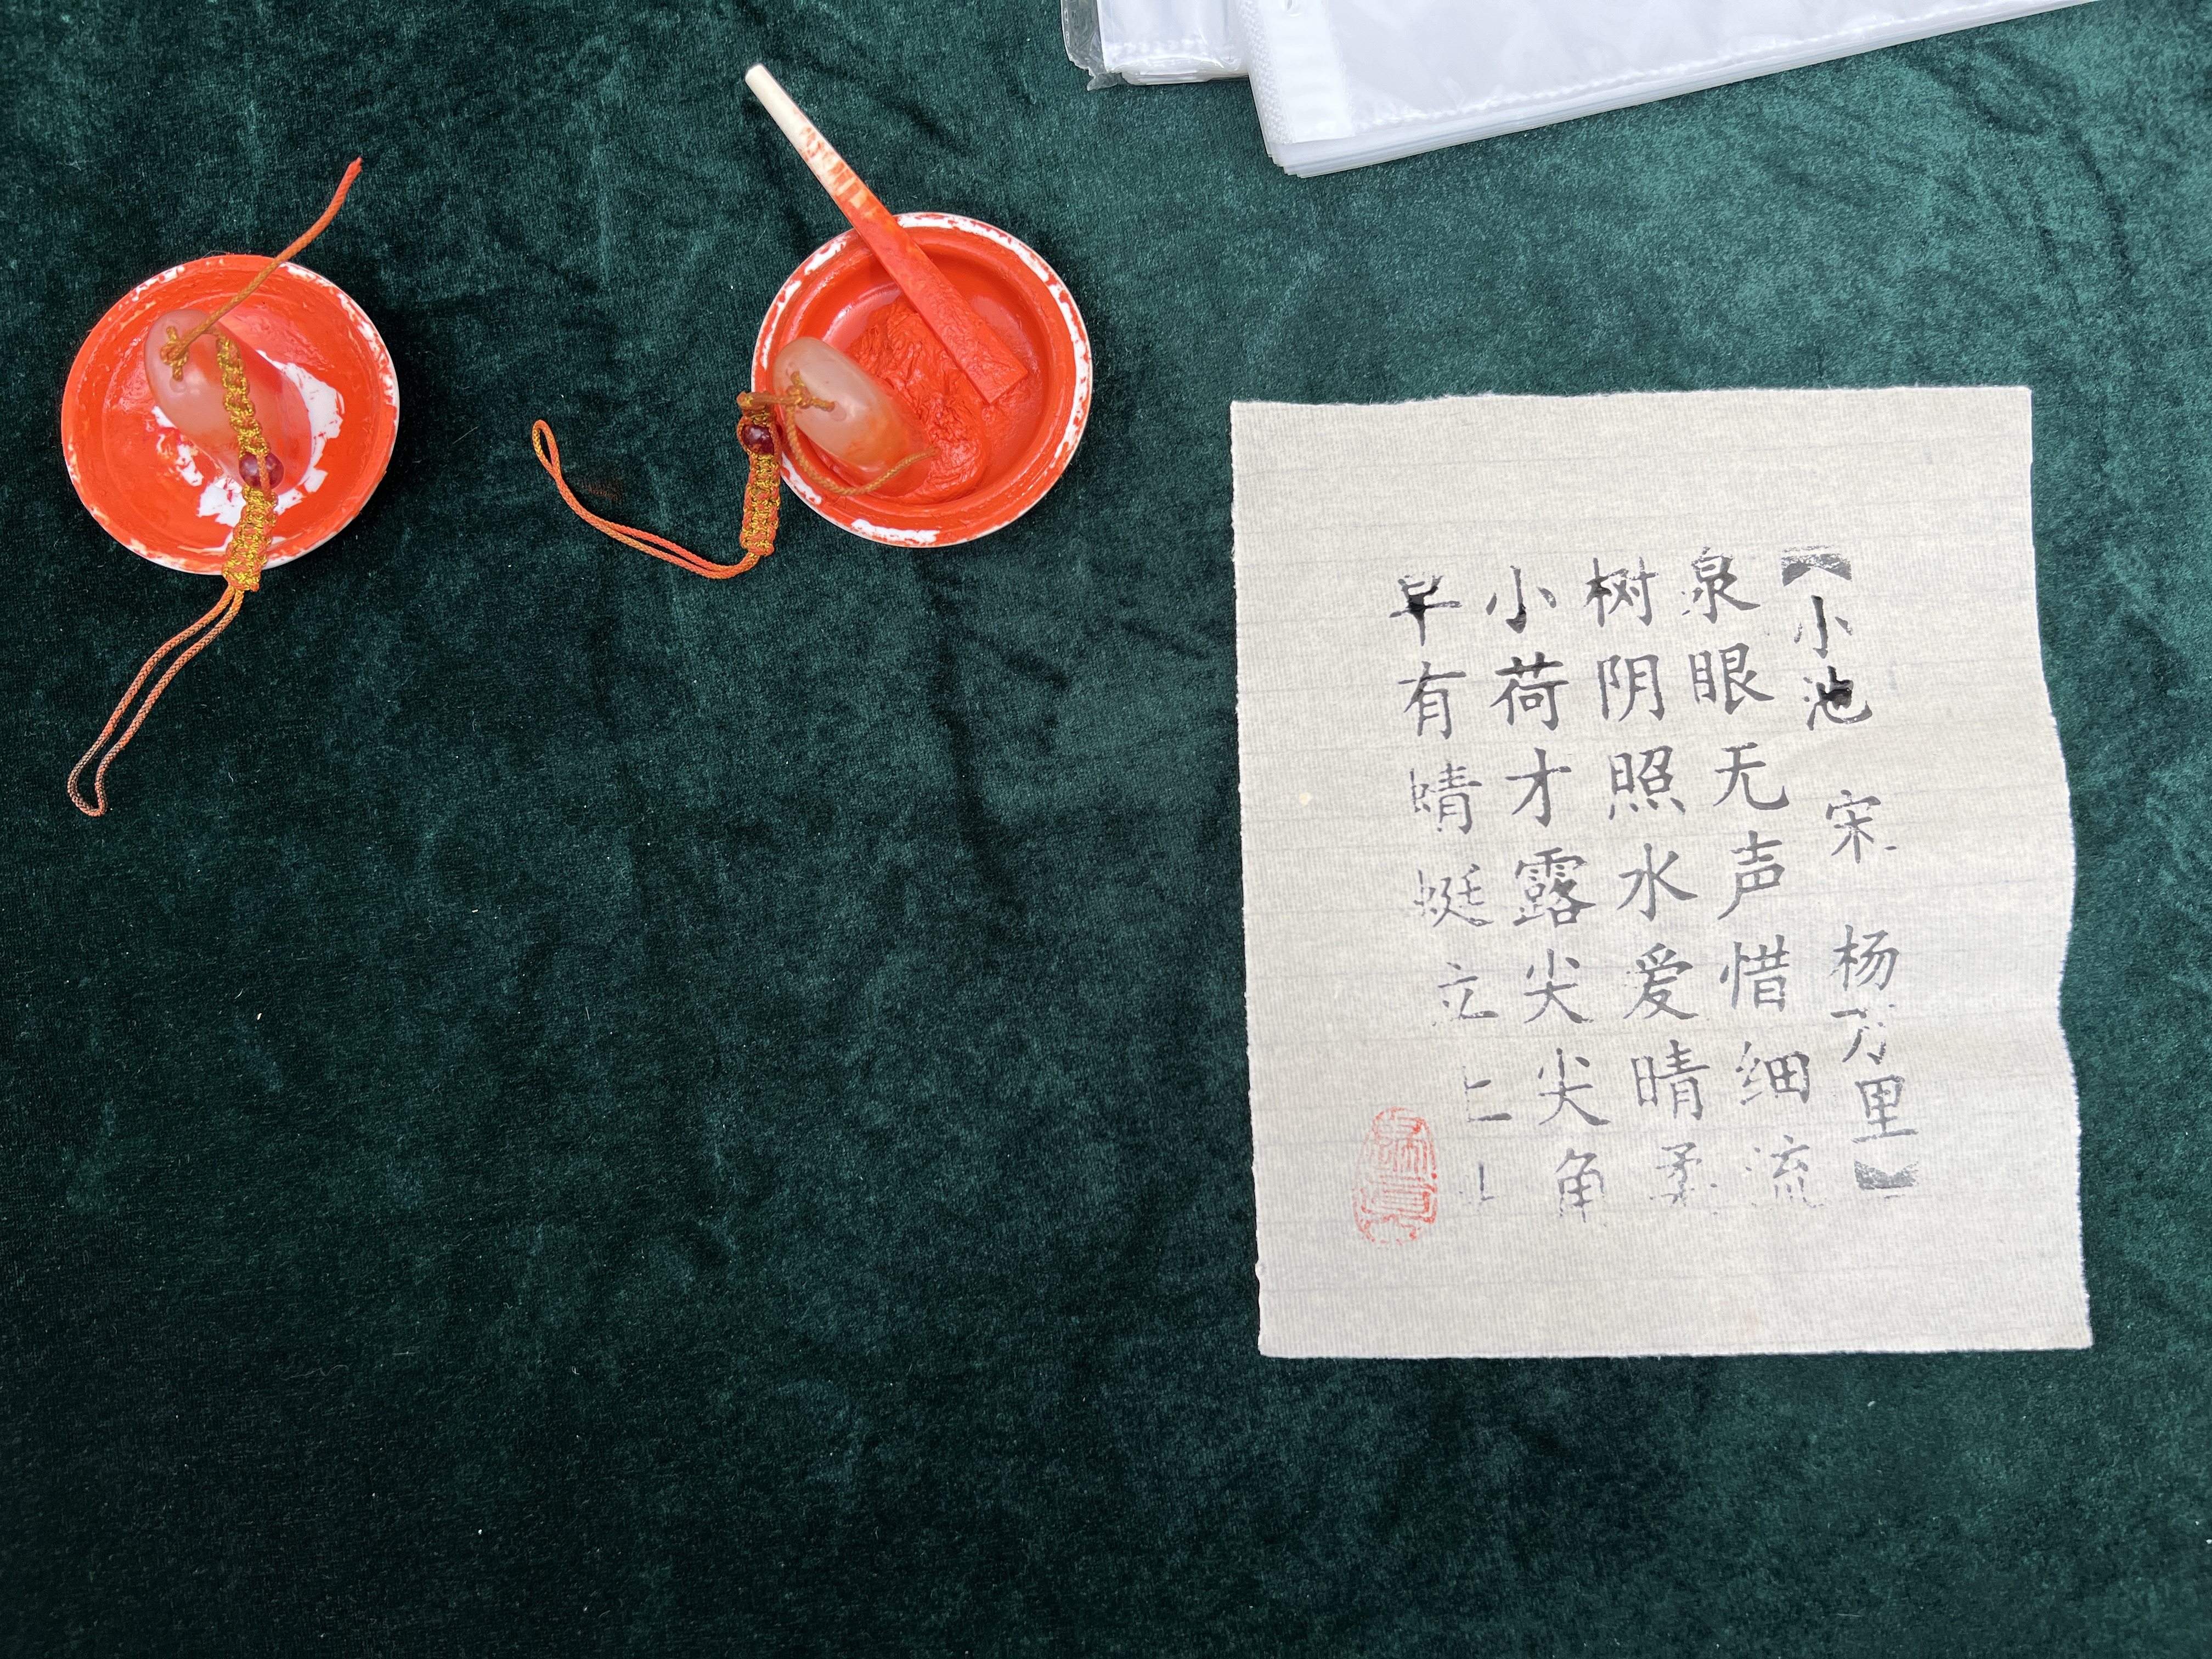 【小池 宋 杨万里】
泉眼无声惜细流
树阴照水爱晴柔
小荷才露尖尖角
早有蜻蜓立上